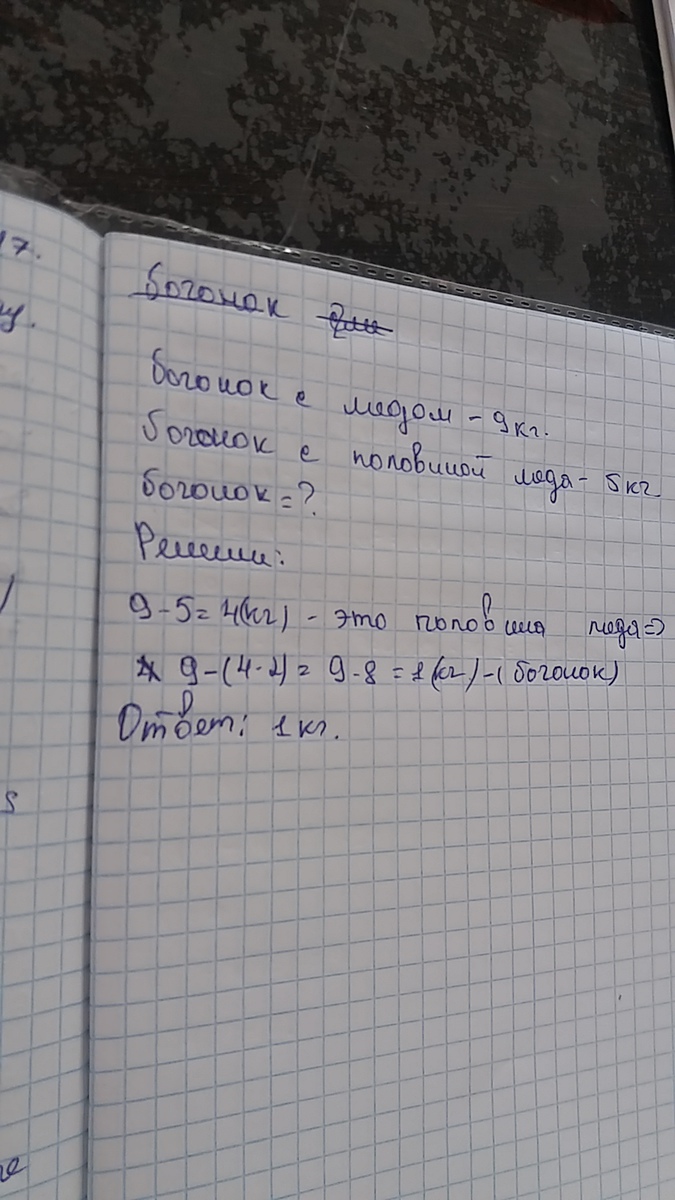 17.
у.
богонок
богонок с медом - 9кг.
богонок с половиной меда - 5кг
богонок = ?
Решени:
9 - 5 = 4(кг) - это половина меда =>
9 - (4 · 2) = 9 - 8 = 1(кг) - (богонок)
Ответ: 1кг.
s